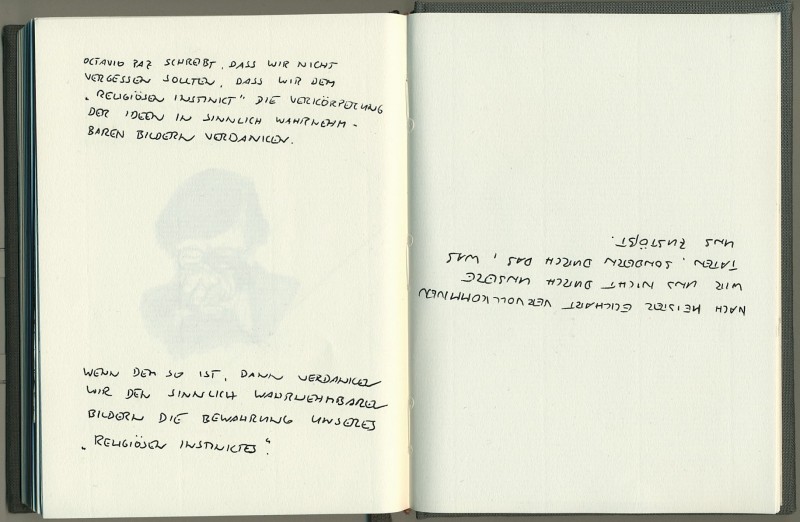 OCTAVIO PAZ SCHREIBT, DASS WIR NICHT
VERGESSEN SOLLTEN, DASS WIR DEM
„RELIGIÖSEN INSTINKT" DIE VERKÖRPERUNG
DER IDEEN IN SINNLICH WAHRNEHM-
BAREN BILDERN VERDANKEN.
WENN DEM SO IST, DANN VERDANKEN
WIR DEN SINNLICH WAHRNEHMBAREN
BILDERN DIE BEWAHRUNG UNSERES
„RELIGIÖSEN INSTINKTES".
NACH MEISTER ECKHART VERVOLLKOMMNEN
WIR UNS NICHT DURCH UNSERE
TATEN, SONDERN DURCH DAS, WAS
UNS ZUSTÖßT.